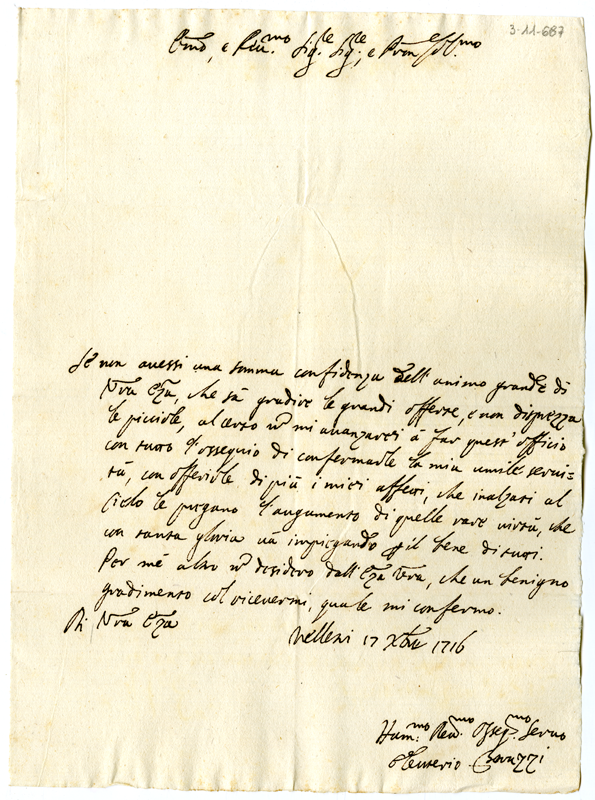 3-11-687
Em͞o, e Rev.mo Sig.re Sig.re, e P͞ron Col.mo
Se non avessi una somma confidenza dell'animo grande di
V͞ra E͞za, che sà gradire le grandi offerte, e non disprezza
le picciole, al certo n͞o mi avanzarei à far quest'officio
con tutto l'ossequio di confermarle la mia umile servi-
tù, con offerirle di più i miei affetti, che inalzati al
Cielo le pregano l'augumento di quelle rare virtù, che
con tanta gloria và impiegando p il bene di tutti.
Per mè altro n͞o desidero dall'E͞za V͞ra, che un benigno
gradimento col ricevermi, quale mi confermo.
Di V͞ra E͞za
Velletri 17 Xbre 1716
Hum.mo Dev.mo Osseq.mo Servo
Eleuterio